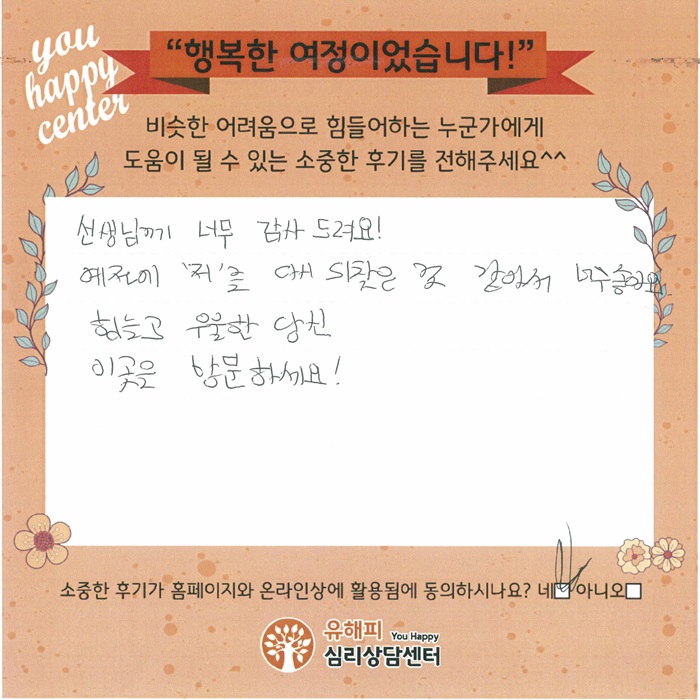 you
happy
center
“행복한 여정이었습니다!”
비슷한 어려움으로 힘들어하는 누군가에게
도움이 될 수 있는 소중한 후기를 전해주세요^^
선생님께 너무 감사 드려요!
예전에 '저'를 다시 되찾은 것 같아서 너무 좋아요
힘들고 우울한 당신
이곳을 방문하세요!
소중한 후기가 홈페이지와 온라인상에 활용됨에 동의하시나요? 네 아니오
유해피 You Happy
심리상담센터